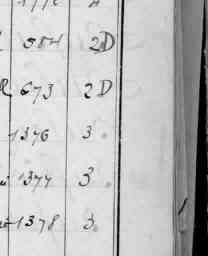 584 2D
R 673 2D
1376 3.
1377 3.
1378 3.